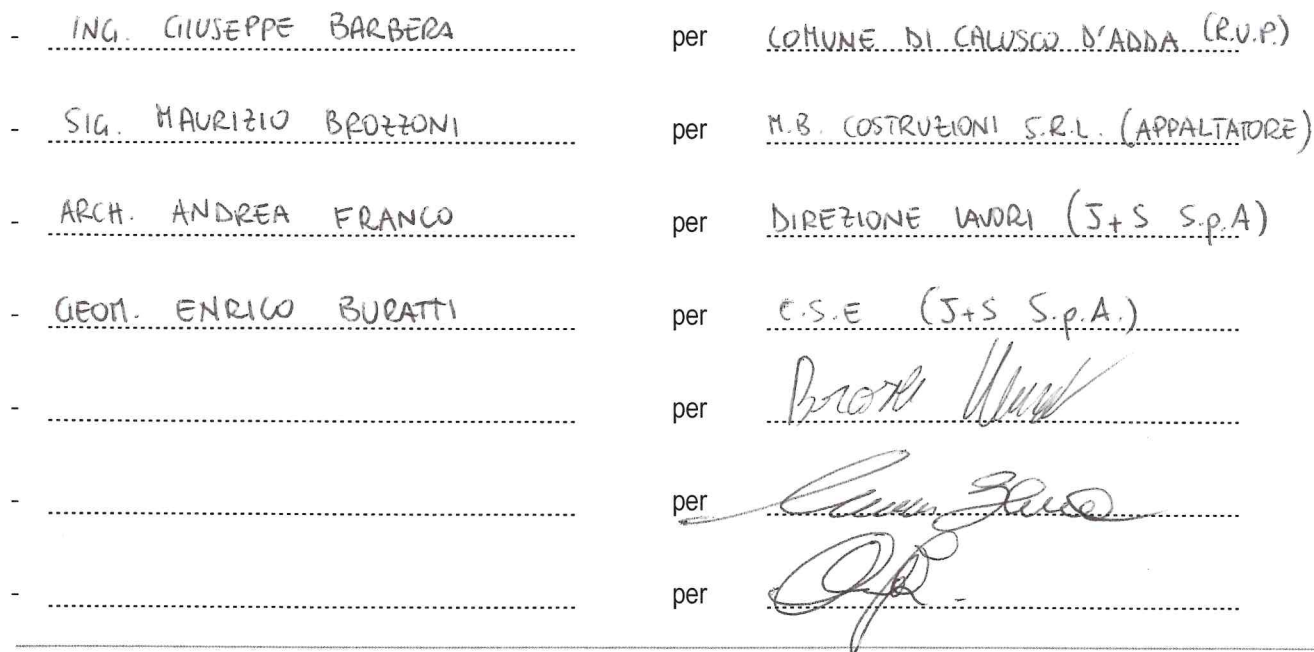 - ING. GIUSEPPE BARBERA per COMUNE DI CALUSCO D'ADDA (R.U.P.)
- SIG. MAURIZIO BROZZONI per M.B. COSTRUZIONI S.R.L. (APPALTATORE)
- ARCH. ANDREA FRANCO per DIREZIONE LAVORI (J+S S.p.A)
- GEOM. ENRICO BURATTI per C.S.E (J+S S.p.A.)
- per
- per
- per